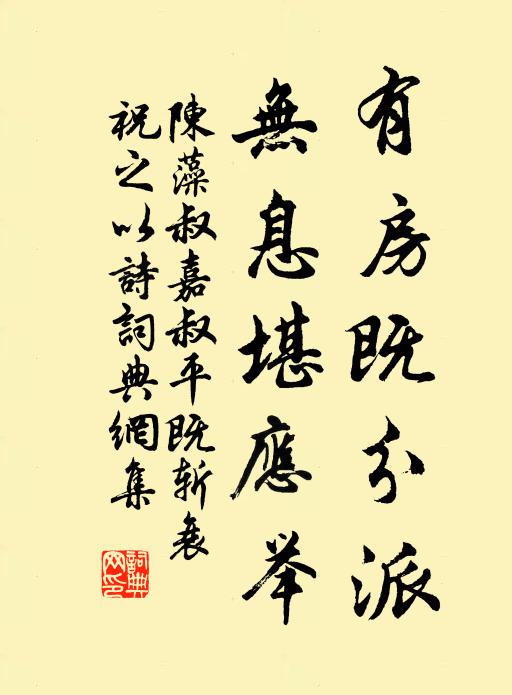 有房既分派
無息堪應举
陳藻叔嘉叔平既斬衰
祝之以詩詞典網集
詞典
网印